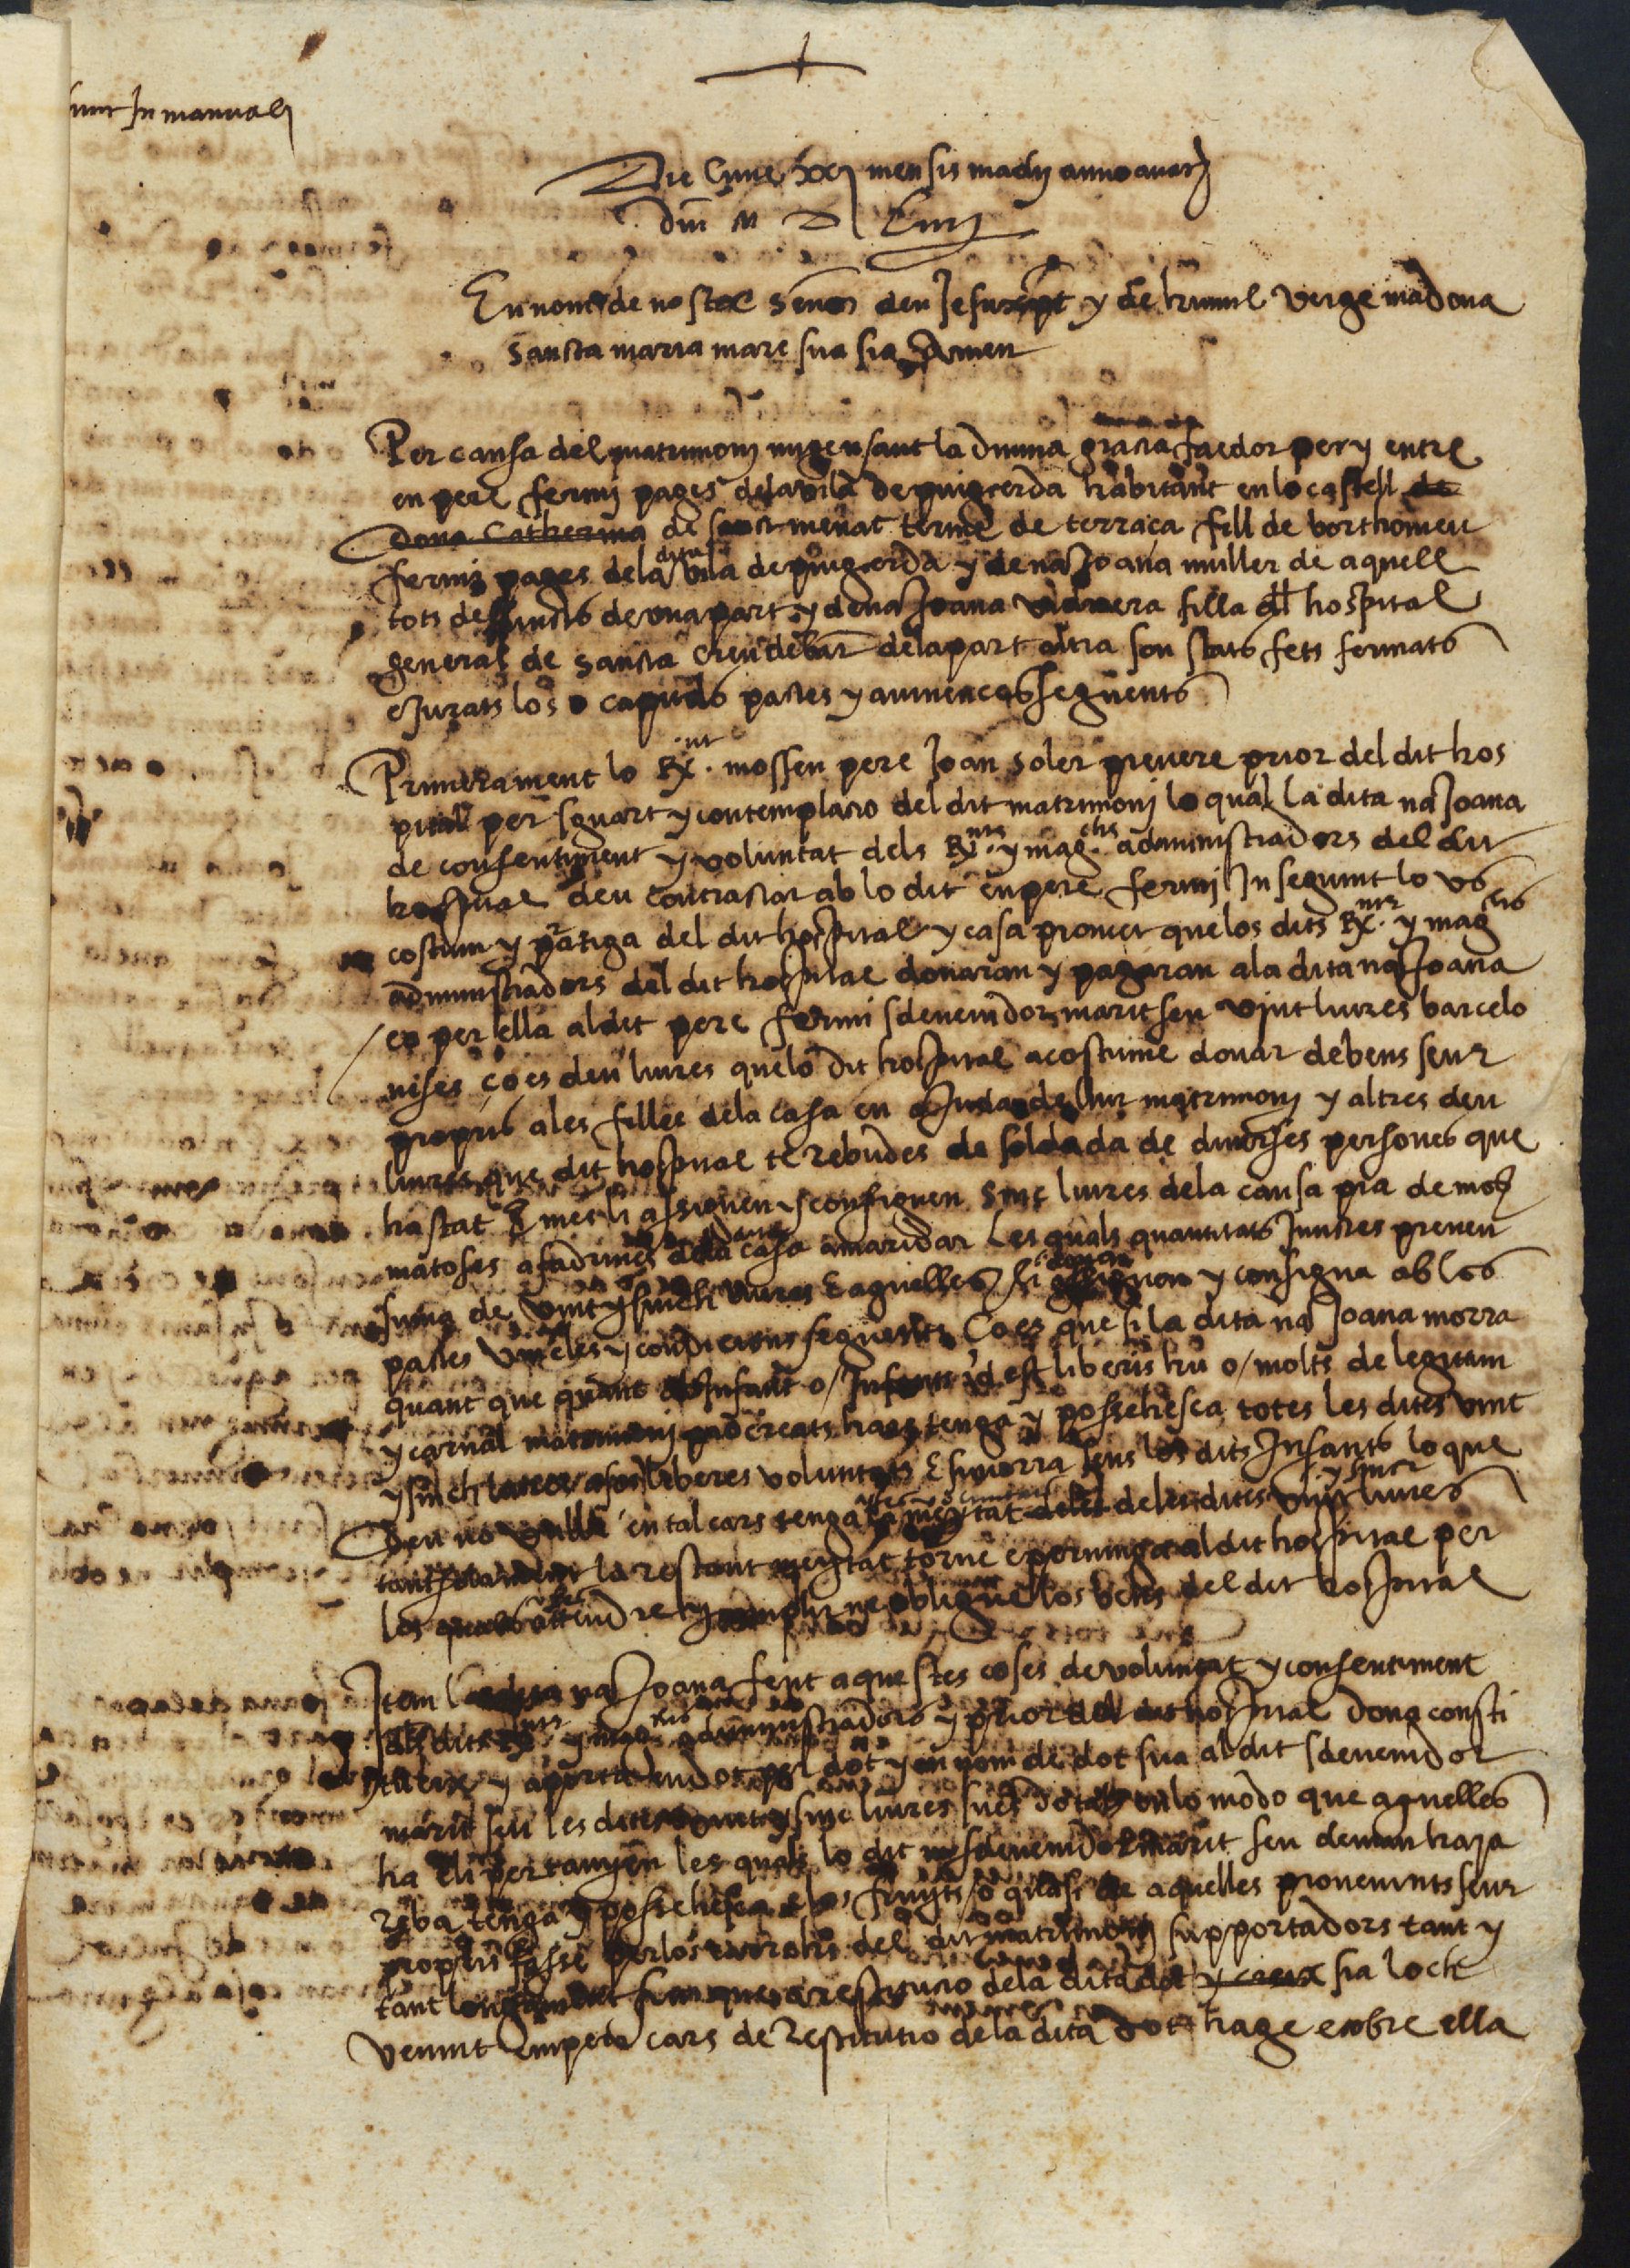 sunt In manuali
Die lune xxj mensis madij anno a nat.
Dni M D Liiij
En nom de nostre Senor deu Jesuxpt y de humil verge madona
Sancta maria mare sua sia Amen
Per causa del matrimoni migensant la divina gracia faedor per y entre
en pere fermi pages dela vila de puigcerda habitant en lo castell de
Dona Catherina de sentmenat terme de terraça fill de borthomeu
fermi pages dela dita vila de puigcerda y de na Joana muller de aquell
tots deffuncts de una part y de na Joana filla del hospital
general de sancta Creu de bar. dela part altra son stats fets fermats
e Jurats los capitols pactes y avinences seguents
Primerament lo Rx.nt mossen pere Joan soler prevere prior del dit hos
pital per sguart y contemplacio del dit matrimoni lo qual la dita na Joana
de consentiment y voluntat dels Rx.nts y mag.chs administradors del dit
hospital deu contractar ab lo dit en pere fermi In seguint lo us
costum y pratiga del dit hospital y casa promet que los dits Rx.nts y mag.chs
administradors del dit hospital donaran y pagaran a la dita na Joana
eo per ella al dit pere fermi sdevenidor marit seu vint liures barcelo
neses ço es deu liures que lo dit hospital acostume donar de bens seus
propris a les filles dela casa en ajuda de llur matrimoni y altres deu
liures que dit hospital te rebudes de soldada de diverses persones que
ha stat E mes li assignen y consignen sinc liures dela causa pia de moss.
matoses a fadrines dela casa a maridar Les quals quantitats Junctes prenen
suma de vint y sinch liures E aquelles li y consigna ab los
pactes vincles y condicions seguents Ço es que si la dita na Joana morra
quant que quant ab Infant o/ Infants id est liberis hu o/ molts de legitim
y carnal matrimoni procreats haje tenga y possehesca totes les dites vint
y sinch liures a ses liberes voluntats E si morra sens los dits Infants lo que
Deu no vulla en tal cars tenga la meytat deles dites vint y sinc liures
tant solament la restant meytat torne e pervinga al dit hospital per
les attendre y complir ne obligue los bens del dit hospital
Item la dita na Joana fent aquestes coses de voluntat y consentiment
dels dits Rx.nts y mag.chs administradors y prior del dit hospital dona consti
tueix y aporta en dot per dot y en nom de dot sua al dit sdevenidor
marit seu les dites vint y sinc liures sues dotals en lo modo que aquelles
ha eli pertanyen les quals lo dit sdevenidor marit seu deman haja
reba tenga y possehesca e los fruyts o quasi de aquelles provenints seus
propris fasse per los carrechs del dit matrimoni supportadors tant y
tant longament fins que restitucio dela dita dot y creix sia loch
venint empero cars de Restitutio dela dita dot hage e cobre ella